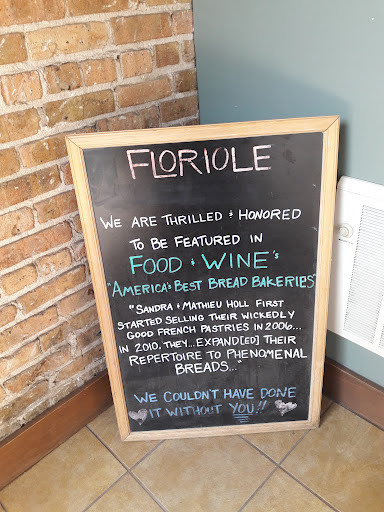 FLORIOLE
WE ARE THRILLED & HONORED
TO BE FEATURED IN
FOOD & WINE'S
"AMERICA'S BEST BREAD BAKERIES"
"SANDRA & MATHIEU HOLL FIRST
STARTED SELLING THEIR WICKEDLY
GOOD FRENCH PASTRIES IN 2006...
IN 2010, THEY...EXPAND[ED] THEIR
REPERTOIRE TO PHENOMENAL
BREADS..."
WE COULDN'T HAVE DONE
IT WITHOUT YOU!!